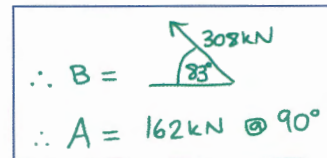 308kN
∴ B = 83°
∴ A = 162kN @ 90°